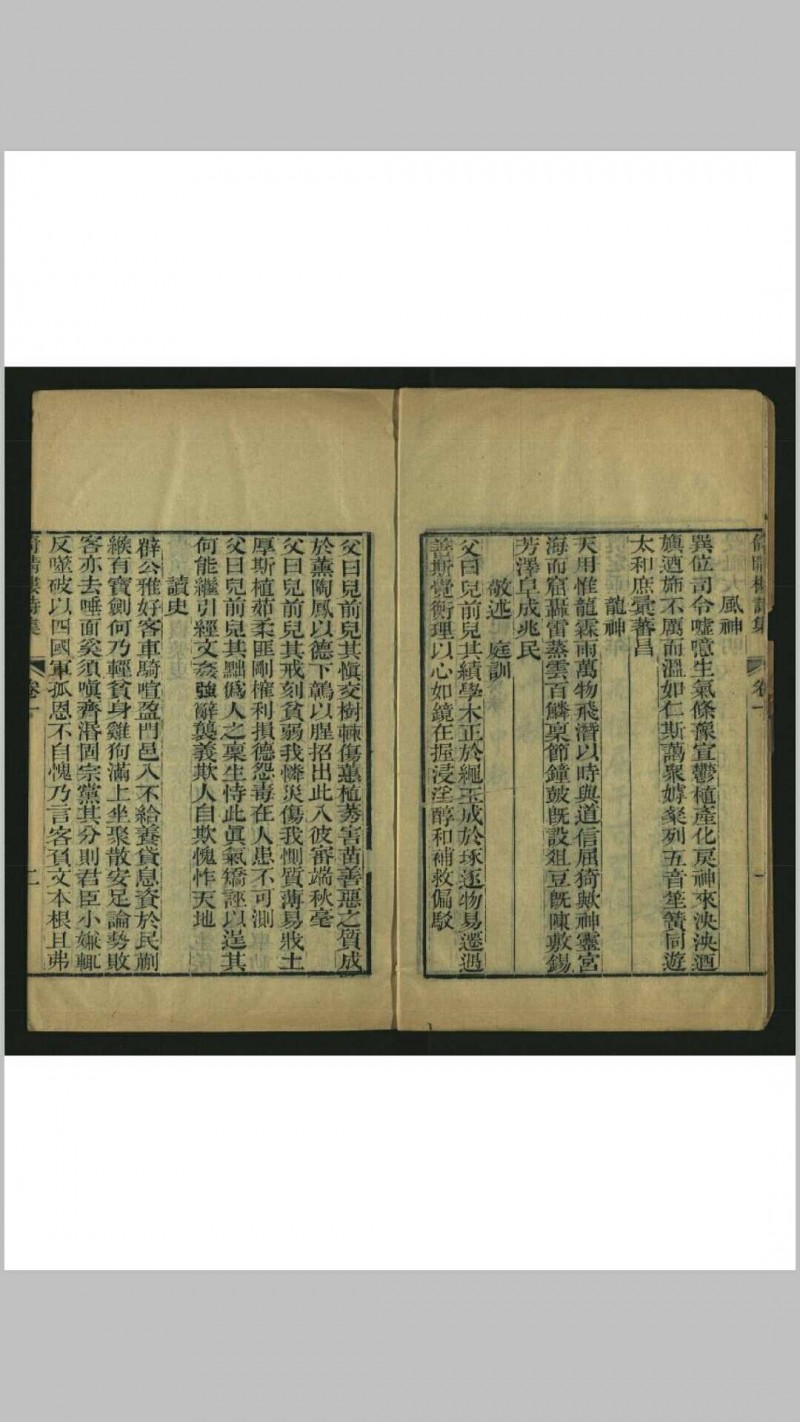 風神
巽位司令噓噫生氣條豫宣鬱植產化戾神來泱泱酒
旗遒斾不厲而溫如仁斯藹眾婞粲列五音笙簧同遊
太和庶彙蕃昌
龍神
天用惟龍霖雨萬物飛潛以時與道信屈猗歟神靈宮
海而窟轟雷蒸雲百鱗稟節鐘皷旣設俎豆旣陳敷錫
芳澤阜成兆民
敬述 庭訓
父曰兒前兒其績學木正於繩玉成於琢逐物易遷遇
善斯覺衡理以心如鏡在握浸淫醇和補救偏駁
父曰兒前兒其愼交樹棘傷蕙植莠害苗善惡之質成
於薰陶鳳以德下鷮以腥招出此入彼審端秋毫
父曰兒前兒其戒刻貧弱我憐災傷我惻質薄易戕土
厚斯植茹柔匪剛權利損德怨毒在人患不可測
父曰兒前兒其黜僞人之稟生恃此眞氣矯誣以逞其
何能繼引經文姦強辭襲義欺人自欺愧怍天地
讀史
薛公雅好客車騎喧盈門邑入不給養貸息資於民蒯
緱有寶劍何乃輕貧身雞狗滿上坐聚散安足論勢敗
客亦去唾面奚須嗔齊湣固宗黨其分則君臣小嫌輒
反噬破以四國軍孤恩不自愧乃言客負文本根且弗
卷一
二
卷一
一